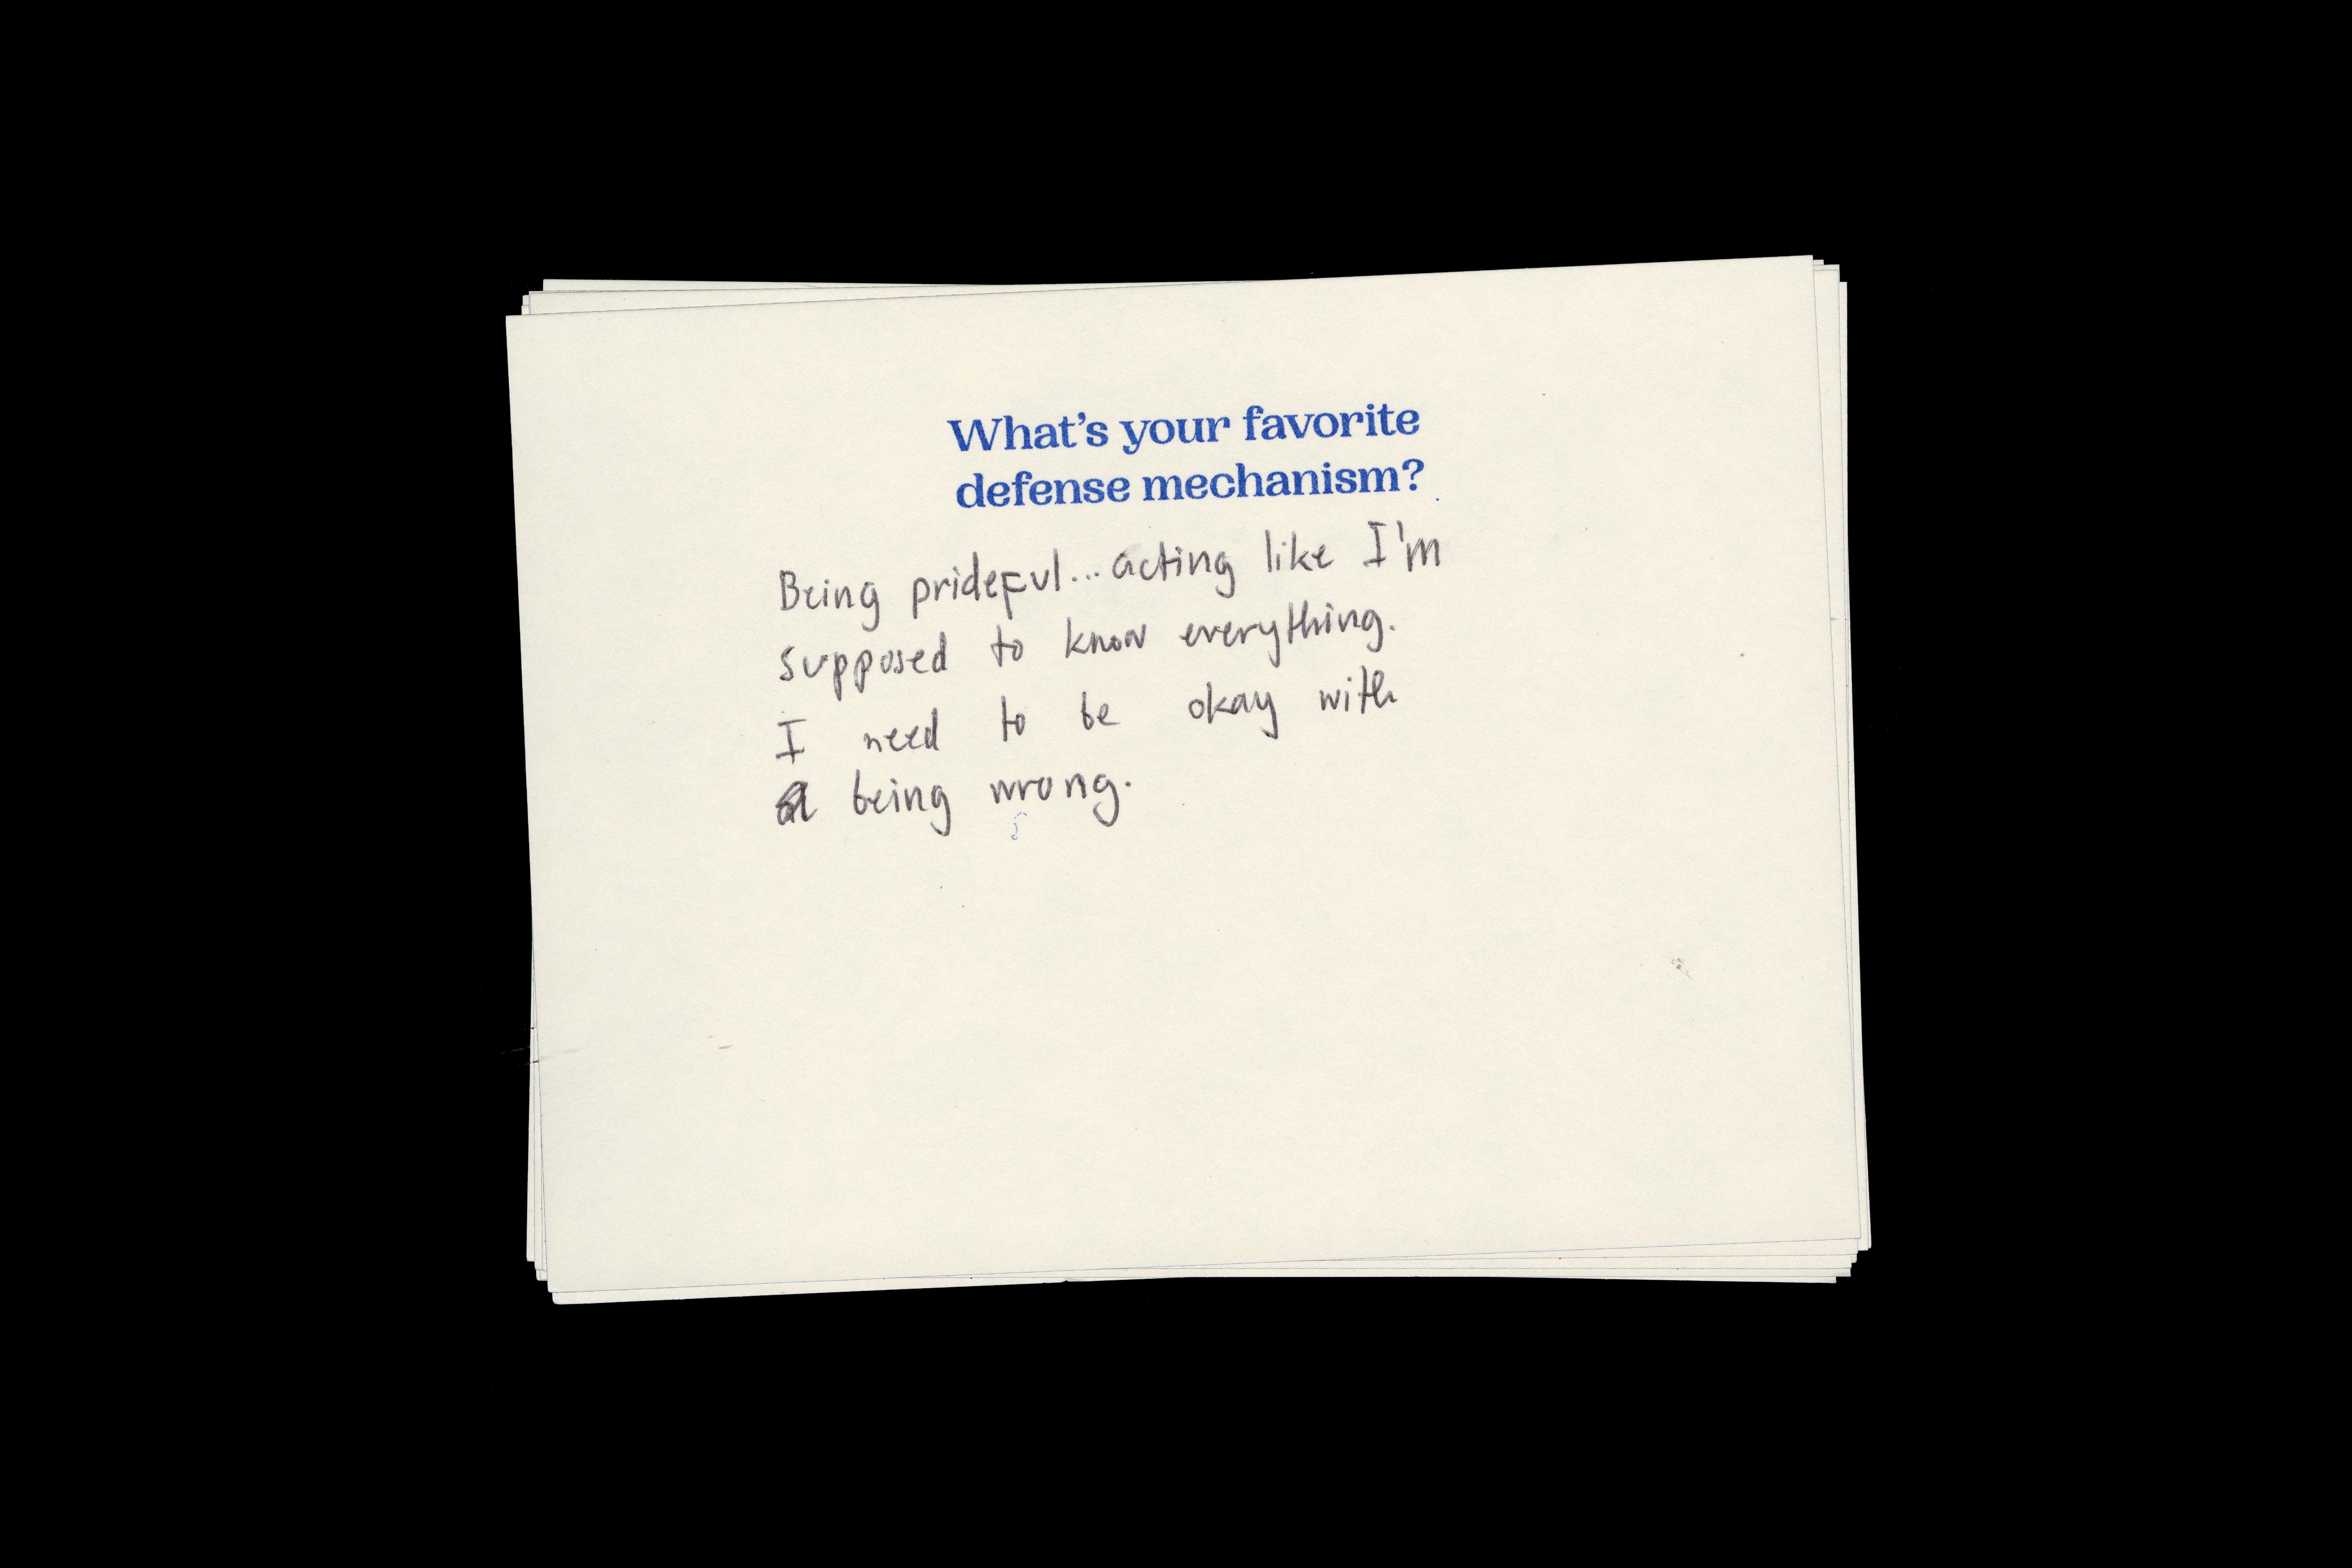 What's your favorite
defense mechanism?
Being prideful...acting like I'm
supposed to know everything.
I need to be okay with
being wrong.